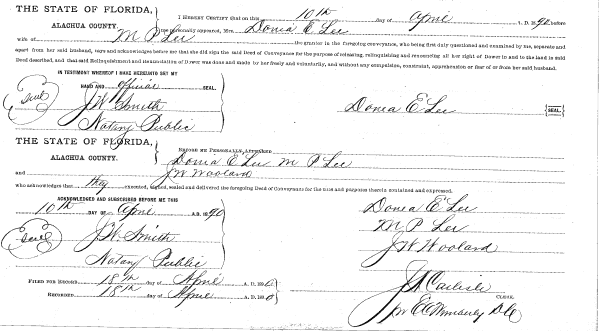 THE STATE OF FLORIDA,
ALACHUA COUNTY.
I HEREBY CERTIFY that on this 10th day of April A. D. 1890 before
me personally appeared, Mrs. Donia E Lee
wife of M P Lee the grantor in the foregoing conveyance, who being first duly questioned and examined by me, separate and
apart from her said husband, says and acknowledges before me that she did sign the said Deed of Conveyance for the purpose of releasing, relinquishing and renouncing all her right of Dower in and to the land in said
Deed described, and that said Relinquishment and Renunciation of Dower was done and made by her freely and voluntarily, and without any compulsion, constraint, apprehension or fear of or from her said husband.
IN TESTIMONY WHEREOF I HAVE HEREUNTO SET MY
HAND AND official SEAL.
Seal
J W Smith
Notary Public
Donia E Lee {SEAL}
THE STATE OF FLORIDA,
ALACHUA COUNTY.
BEFORE ME PERSONALLY APPEARED
Donia E Lee M P Lee
and J W Wooland
who acknowledges that they executed, signed, sealed and delivered the foregoing Deed of Conveyance for the uses and purposes therein contained and expressed.
ACKNOWLEDGED AND SUBSCRIBED BEFORE ME THIS
10th DAY OF April A. D. 1890
Seal
J. W. Smith
Notary Public
Donia E Lee
M P Lee
J W Wooland
FILED FOR RECORD 18th day of April A. D. 1890
RECORDED 18th day of April A. D. 1890
J A Carlisle
CLERK.
D C